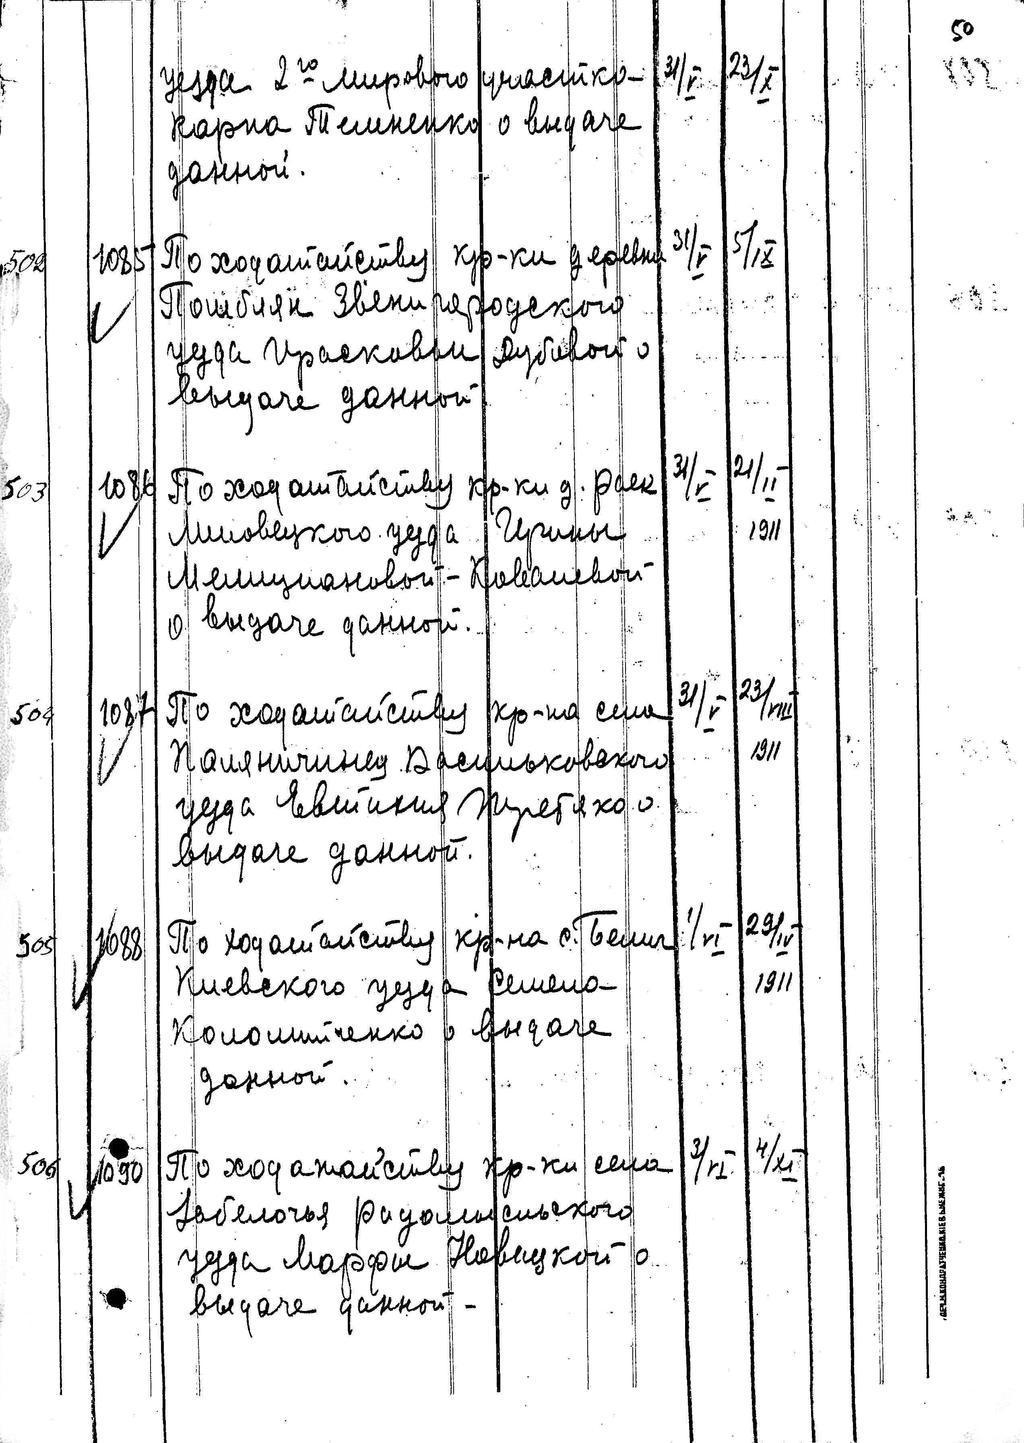 50
уезда 2го мирового участка 31/V 23/X
Карпа Темненко о выдаче
данной.
502 1085 По ходатайству кр-ки деревни 31/V 5/IX
Звенигородского
уезда Прасковьи Дубовой о
выдаче данной
503 1086 По ходатайству кр-ки д. Раек 31/V 21/II
уезда Ирины 1911
Мелициановой-Ковалевой
о выдаче данной.
504 1087 По ходатайству кр-на села 31/V 23/VIII
Паляничинец Васильковского 1911
уезда Евтихия Третяко о
выдаче данной.
505 1088 По ходатайству кр-на с. Белич 1/VI 29/IV
Киевского уезда Семена 1911
Коломийченко о выдаче
данной.
506 1090 По ходатайству кр-ки села 3/VI 4/XI
Забелочья Радомысльского
уезда Марфы Новицкой о
выдаче данной-